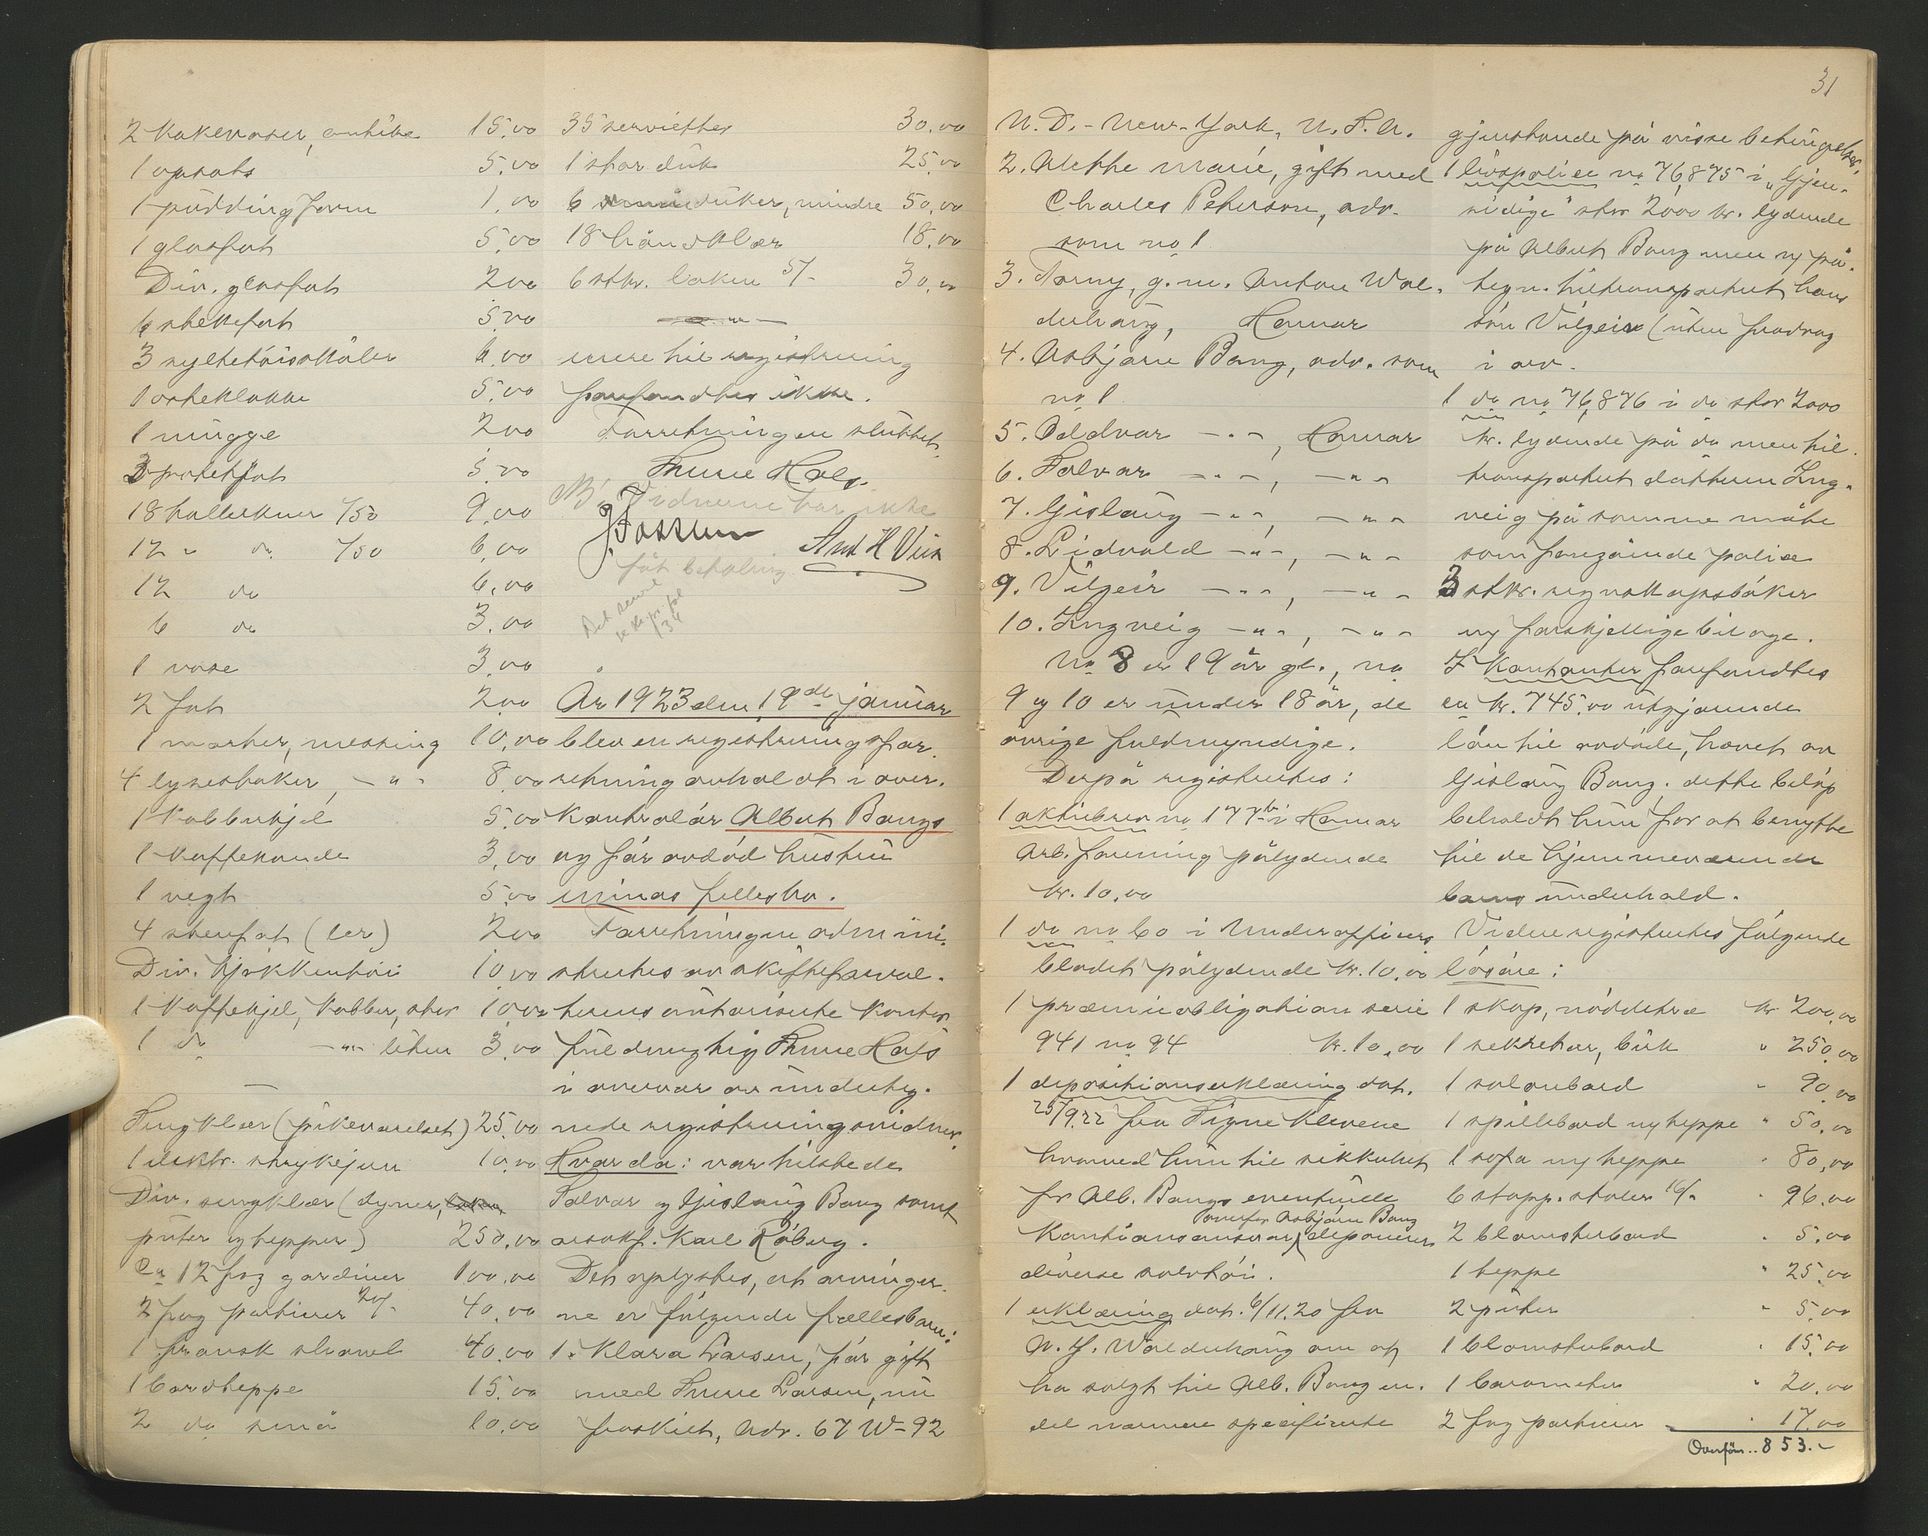 2 kakevaser, antike 15,00
1 opsats 5,00
1 puddingform 1,00
1 glasfat 5,00
Div. glasfat 2,00
6 stekefat 5,00
3 syltetøisskåler 6,00
1 osteklokke 5,00
1 mugge 2,00
3 posteifat 5,00
18 tallerkner /50 9,00
12 " do /50 6,00
12 do 6,00
6 do 3,00
1 vase 3,00
2 fat 2,00
1 morter, messing 10,00
4 lysestaker, -"- 8,00
1 kobberkjel 5,00
1 kaffekande 3,00
1 vegt 5,00
4 stenfat (ler) 2,00
Div. kjøkkentøi 10,00
1 kaffekjel, kobber, stor 10,00
1 do -"- liten 3,00
Sengklær (pikeværelset) 25,00
1 elektr. strykejern 10,00
Div. sengklær (dyner,
puter og tepper) 250,00
Ca 12 fag gardiner 100,00
2 fag portierer 20/- 40,00
1 fransk shavl 40,00
1 bordteppe 15,00
2 do små 10,00
35 servietter 30,00
1 stor duk 25,00
6 duker, mindre 50,00
18 håndklær 18,00
6 stkr. laken 5/- 30,00
-"-
mere til registrering
forefandtes ikke.
Forretningen sluttet.
Thure Hals.
NB. Vidnerne har ikke
J Fossum
fåt betaling.
And H Vik
Det senere
se kopi. fol
134
År 1923 den 19de januar
blev en registreringsfor-
retning avholdt i over-
kontrolør Albert Bangs
og før avdød hustru
Minas fellesbo.
Forretningen admini-
strertes av skifteforval-
terens autoriserte kontor-
fuldmægtig Thure Hals
i overvær av underteg-
nede registreringsvidner.
Hvorda: var tilstede
Salvar og Gislaug Bang samt
o.r.sakf. Karl Róberg.
Det oplystes, at arvinger-
ne er følgende fællesbarn:
1. Klara Larsen, før gift
med Thure Larsen, nu
fraskilt, Adr. 67 W-92
31
N.D. - New-York, U.S.A.
2. Aethe Marie, gift med
Charles Peterson, adr.
som no 1.
3. Torny, g.m. Anton Wal-
derhaug, Hamar
4. Asbjørn Bang, adr. som
no 1.
5. Oddvar -"-, Hamar
6. Salvar -"-, -"-
7. Gislaug -"-, -"-
8. Lidvald -"-, -"-
9. Vilgeir -"-, -"-
10. Ingveig -"-, -"-
No 8 er 19 år gl., no
9 og 10 er under 18 år, de
øvrige fuldmyndige.
Derpå registrertes:
1 aktiebrev no 177 i Hamar
Arb. forening pålydende
kr. 10,00
1 do no 60 i Underofficers
bladet pålydende kr. 10,00
1 præmieobligation serie
941 no 94 kr. 10,00
1 depositionserklæring dat.
25/9.22 fra Signe Klevene
hvorved hun til sikkerhet
for Alb. Bangs eventuelle
kautionsansvar overfor Asbjørn Bang deponerer
diverse sølvtøi.
1 erklæring dat. 6/11.20 fra
A. J. Walderhaug om at
ha solgt til Alb. Bang en
del nærmere specificerte
gjenstande på visse betingelser.
1 livspolise no 76,875 i "Gjen-
sidige" stor 2000 kr. lydende
på Albert Bang men ny på-
tegn. tiltransportert hans
søn Vilgeir (uten fradrag
i arv.
1 do no 76,876 i do stor 2000
kr. lydende på do men til-
transportert datteren Ing-
veig på samme måte
som foregående polise
3 stkr. regnskapsbøker
og forskjellige bilage.
I kontanter forefandtes
ca kr. 745,00 utgjørende
lån til avdøde, hævet av
Gislaug Bang. dette beløp
beholdt hun for at benytte
til de hjemmeværende
barns underhold.
Videre registrertes følgende
løsøre:
1 skap, nøddetræ kr 200,00
1 sekretær, birk " 250,00
1 salonbord " 90,00
1 spillebord og teppe " 50,00
1 sofa og teppe " 80,00
6 stopp. stoler 16/- " 96,00
2 blomsterbord " 5,00
1 teppe " 25,00
2 puter " 5,00
1 blomsterbord " 15,00
1 barometer " 20,00
2 fag portierer " 17,00
Overføres.. 853.-